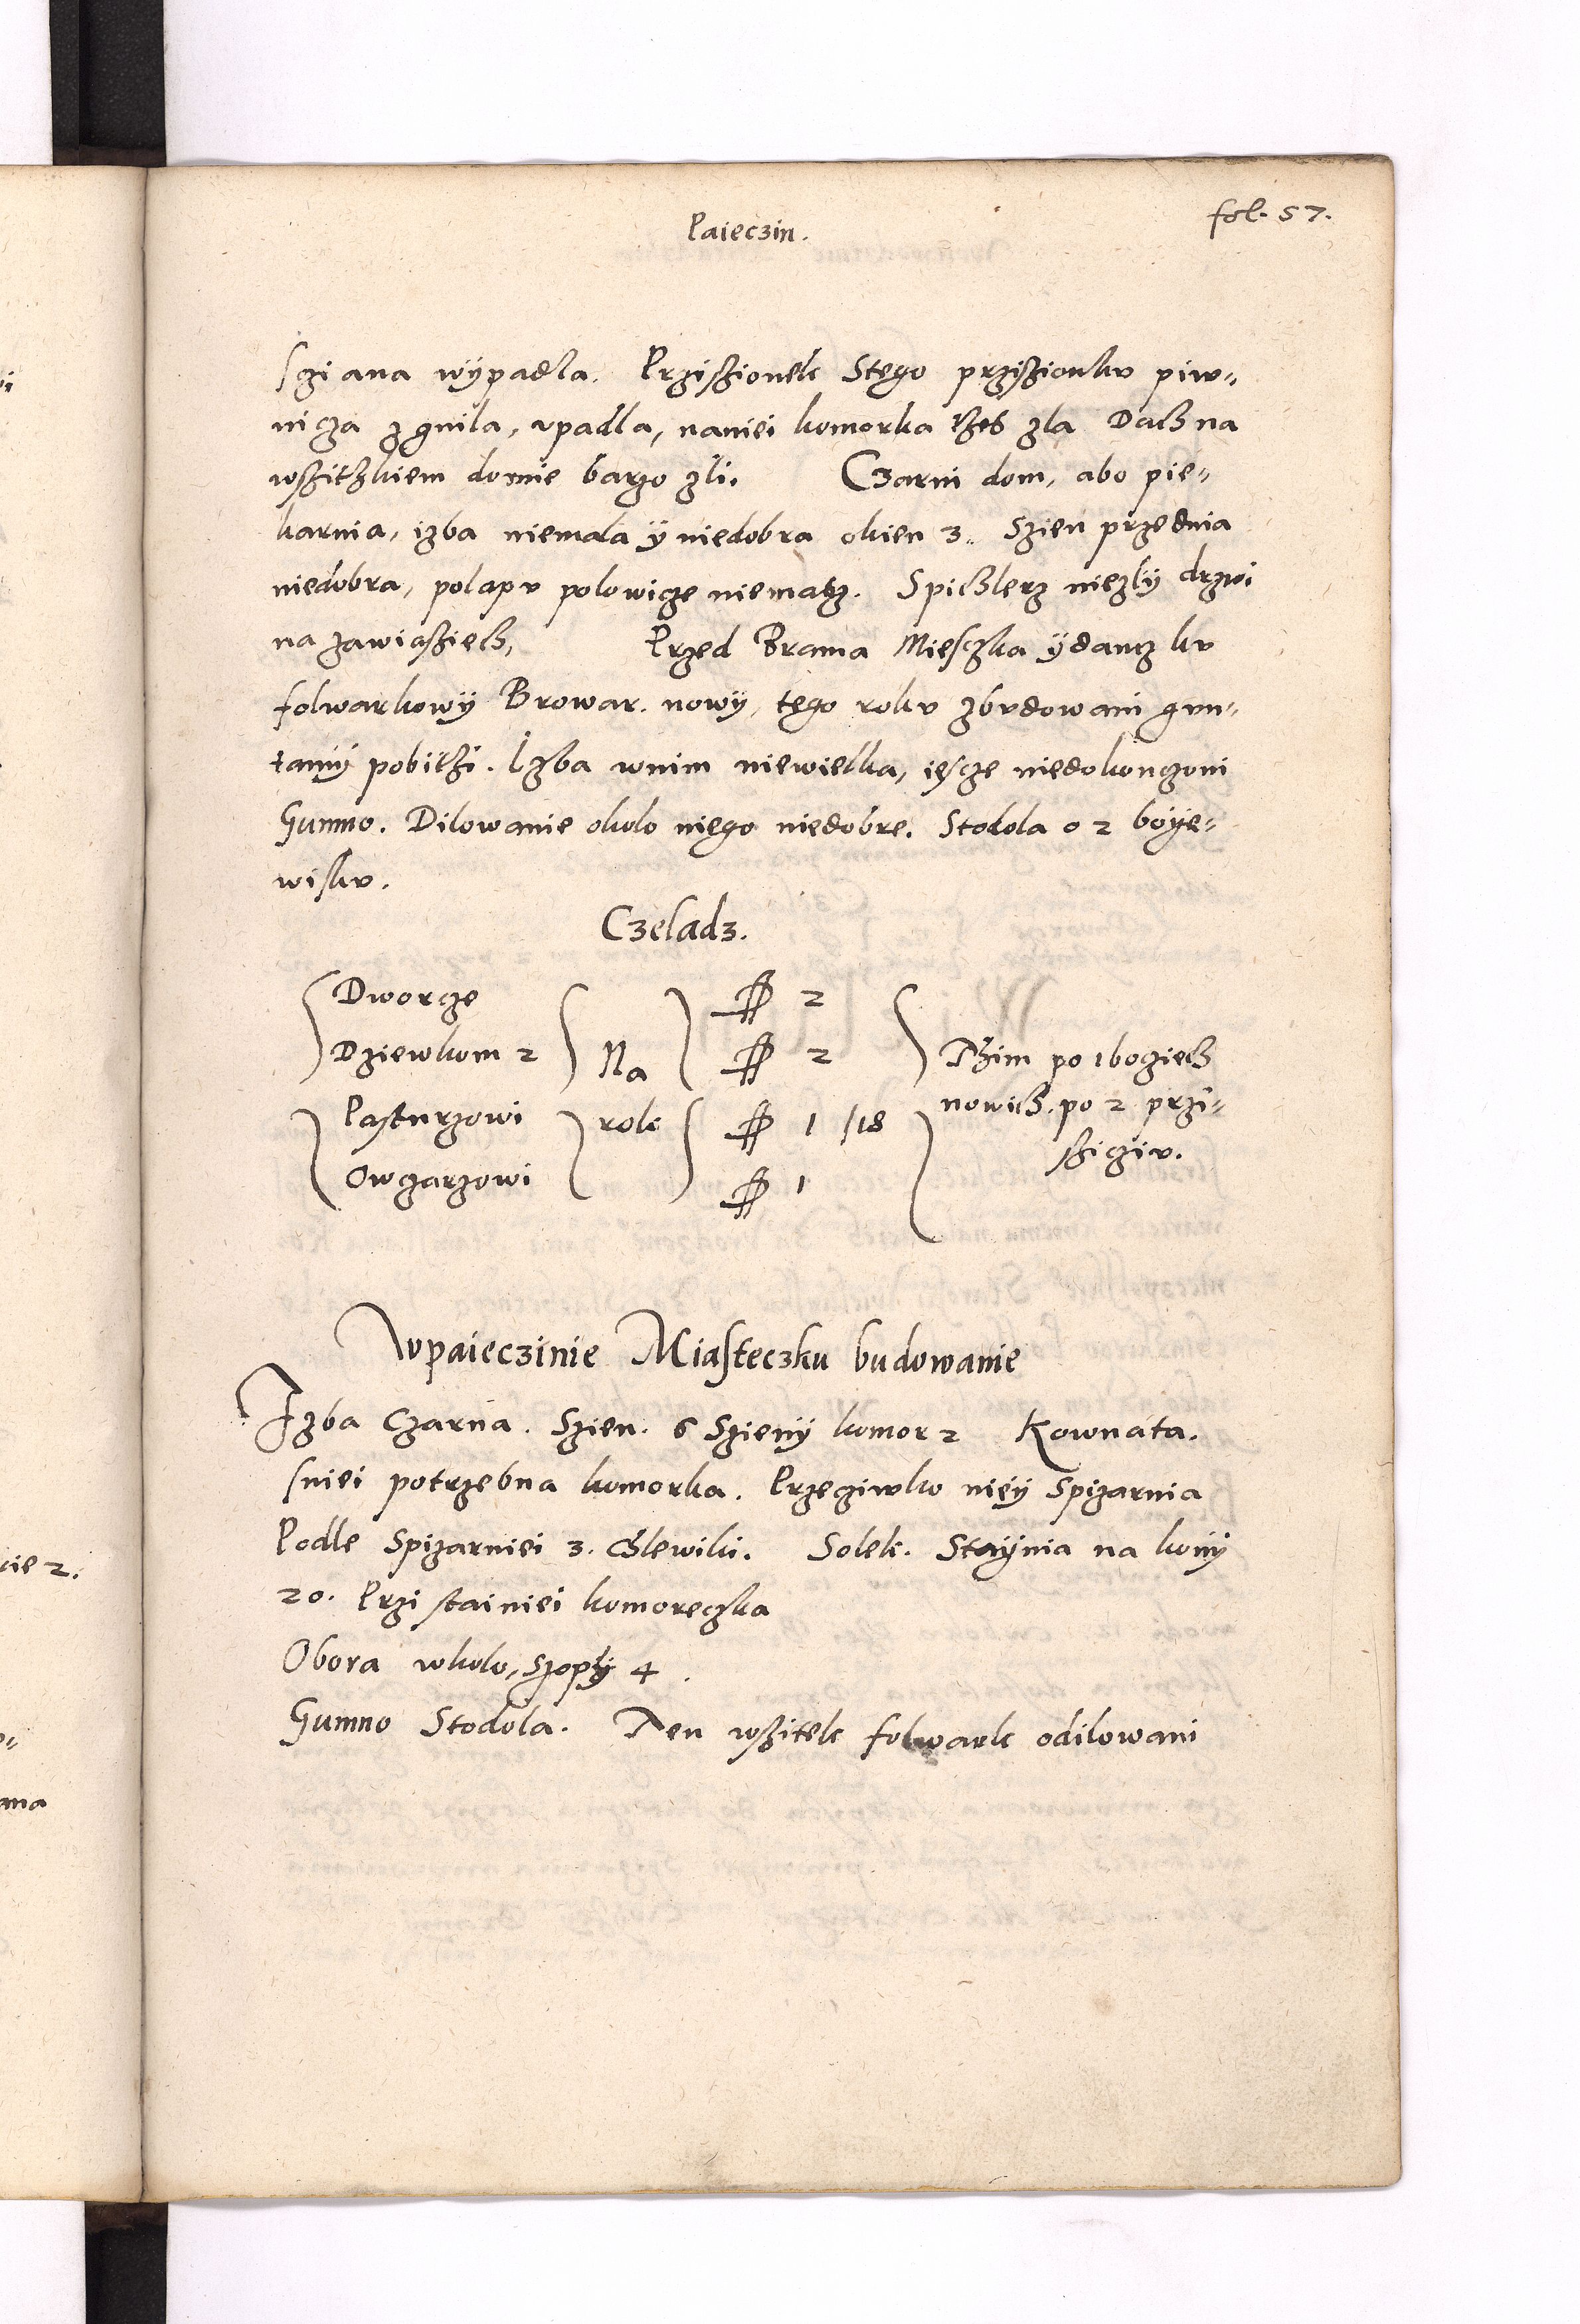 Paieczin.
fol. 57.
sziana wÿpadla. Przisżionek Stego przisżionku piw=
nicza zgnila, vpadla, naniei komorka tżeß zla Dach na
wsżitzkiem domie barzo zli. Czarni dom, abo pie=
karnia, izba niemala ÿ niedobra okien 3. Szien przednia
niedobra, polapu polowicze niemasz. Spichlerz niezlÿ drzwi
na zawiasżiech, Przed Brama Miesczka ÿdancz ku
folwarkowÿ Browar nowÿ, tego roku zbudowani gun=
tamÿ pobitżi. Izba wnim niewielka, iescze niedokonczoni
Gumno. Dilowanie okolo niego niedobre. Stodola o 2 boÿe=
wisku.
Czeladz.
Dworcze
Dziewkom 2
Pasturzowi
Owczarzowi
Na
rok
2
2
1 /18
1
Tżim po 1 bogiech
nowich. po 2 przi=
sżicziu.
wpaieczinie Miasteczku budowanie
Izba Czarna. Szien. 6 Szienÿ komor 2 Kownata.
sniei potrzebna komorka. Przeciwko nieÿ Spizarnia
Podle Spizarniei 3. Chlewiki. Solek. Staÿnia na konÿ
20. Przi stainiei komoreczka
Obora wkolo, szopÿ 4.
Gumno Stodola. Ten wsżitek folwark odilowani
kie 2.
ma